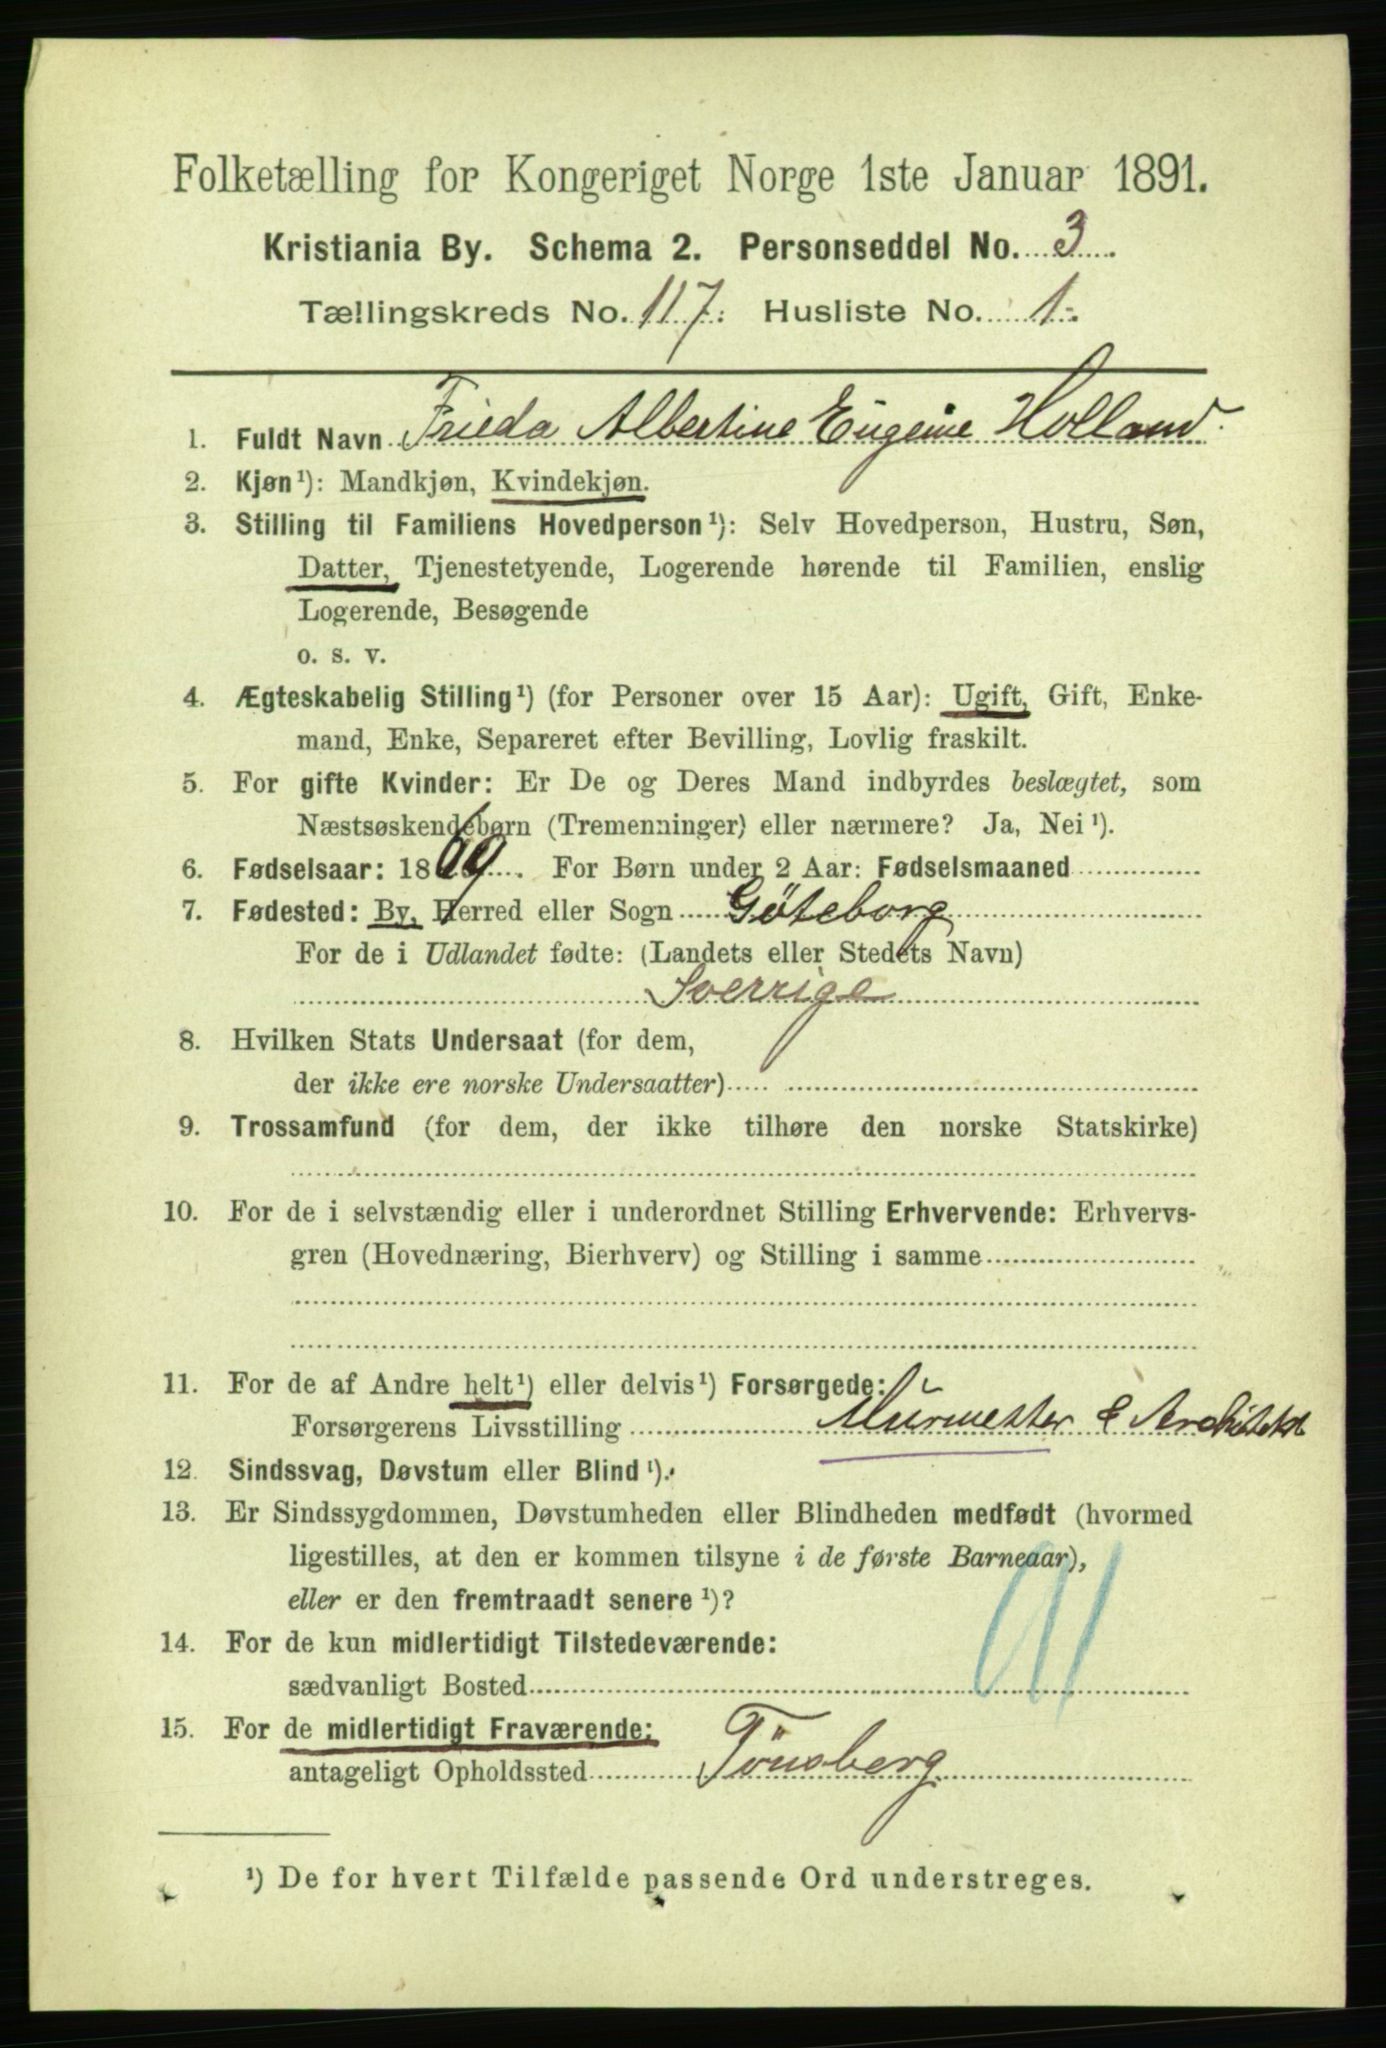 Folketælling for Kongeriget Norge 1ste Januar 1891.
Kristiania By. Schema 2. Personseddel No. 3.
Tællingskreds No. 117. Husliste No. 1.
1. Fuldt Navn Frieda Albertine Eugenie Holland.
2. Kjøn¹): Mandkjøn, Kvindekjøn.
3. Stilling til Familiens Hovedperson¹): Selv Hovedperson, Hustru, Søn,
Datter, Tjenestetyende, Logerende hørende til Familien, enslig
Logerende, Besøgende
o. s. v.
4. Ægteskabelig Stilling¹) (for Personer over 15 Aar): Ugift, Gift, Enke-
mand, Enke, Separeret efter Bevilling, Lovlig fraskilt.
5. For gifte Kvinder: Er De og Deres Mand indbyrdes beslægtet, som
Næstsøskendebørn (Tremenninger) eller nærmere? Ja, Nei¹).
6. Fødselsaar: 1869. For Børn under 2 Aar: Fødselsmaaned
7. Fødested: By, Herred eller Sogn Göteborg
For de i Udlandet fødte: (Landets eller Stedets Navn)
Sverrige
8. Hvilken Stats Undersaat (for dem,
der ikke ere norske Undersaatter)
9. Trossamfund (for dem, der ikke tilhøre den norske Statskirke)
10. For de i selvstændig eller i underordnet Stilling Erhvervende: Erhvervs-
gren (Hovednæring, Bierhverv) og Stilling i samme
11. For de af Andre helt¹) eller delvis¹) Forsørgede:
Forsørgerens Livsstilling Mŭrmester & Architekt
12. Sindssvag, Døvstum eller Blind¹).
13. Er Sindssygdommen, Døvstumheden eller Blindheden medfødt (hvormed
ligestilles, at den er kommen tilsyne i de første Barneaar),
eller er den fremtraadt senere¹)?
91
14. For de kun midlertidigt Tilstedeværende:
sædvanligt Bosted
15. For de midlertidigt Fraværende:
antageligt Opholdssted Tönsberg
¹) De for hvert Tilfælde passende Ord understreges.